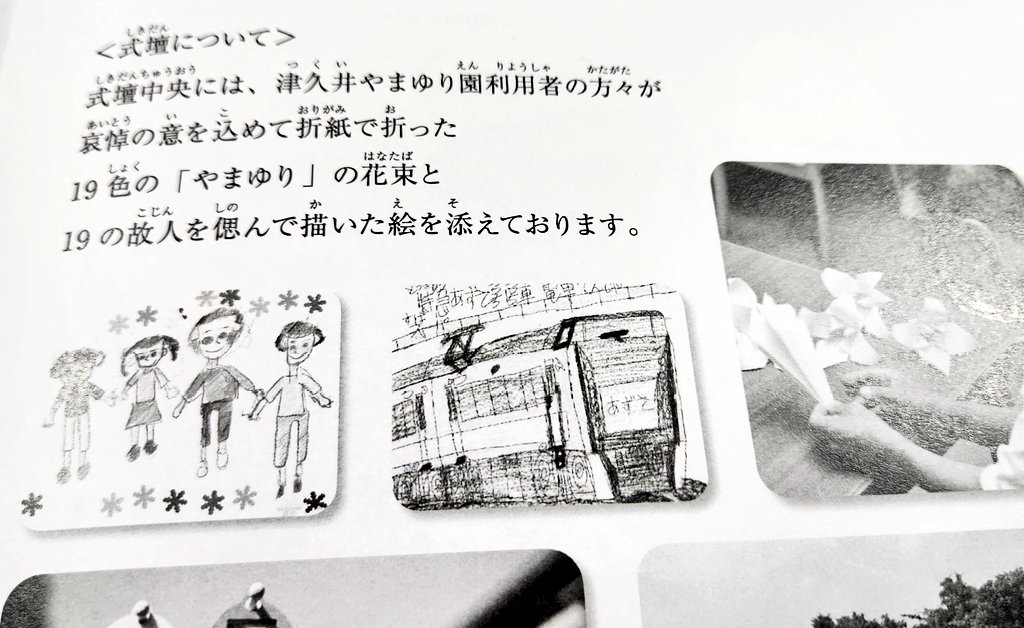 ＜式壇について＞
式壇中央には、津久井やまゆり園利用者の方々が
哀悼の意を込めて折紙で折った
19色の「やまゆり」の花束と
19の故人を偲んで描いた絵を添えております。
特急あずさ号
あずさ